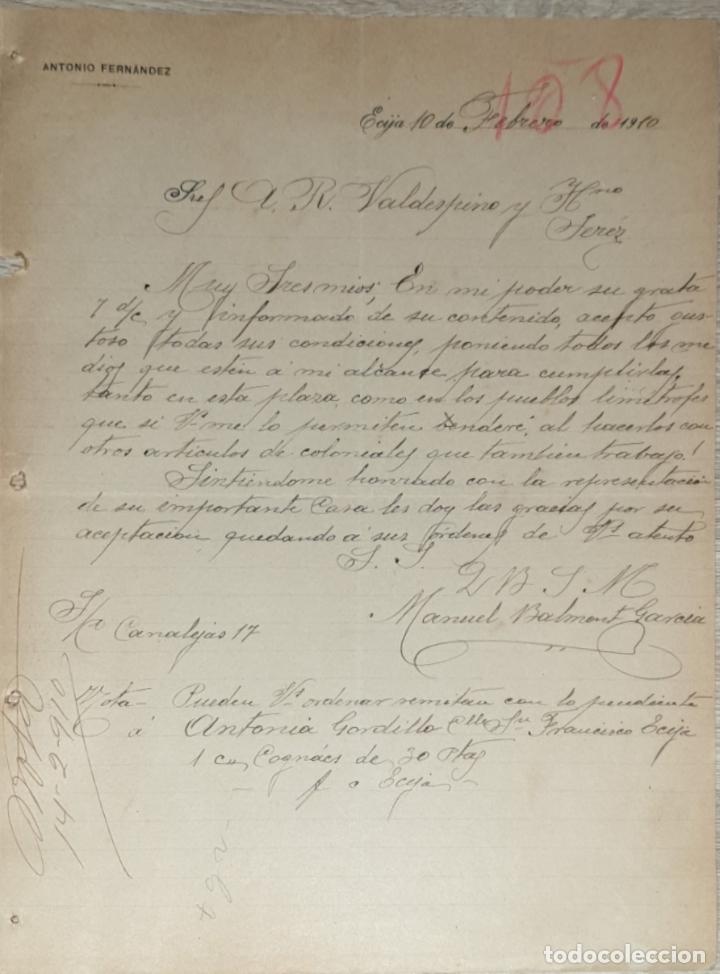 ANTONIO FERNÁNDEZ
108
Ecija 10 de Febrero de 1910
Sres A. R. Valdespino y Hno
Jeréz
Muy Sres mios; En mi poder su grata
7 d/c y informado de su contenido, acepto gus-
toso todas sus condiciones, poniendo todos los me
dios que estén á mi alcance para cumplirlas,
tanto en esta plaza como en los pueblos limitrofes
que si Vs me lo permiten benderé, al hacerlos con
otros articulos de coloniales que tambien trabajo!
Sintiendome honrado con la representación
de su importante Casa les doy las gracias por su
aceptación quedando á sus órdenes de Vs atento
S. S.
Q B S M
Manuel Balmont Garcia
S/c Canalejas 17
Nota - Pueden Vs ordenar remitan con lo pendiente
á Antonia Gordillo Calle Sn Francisco Ecija
1 ca Cognács de 30 Ptas
f c Ecija
14-2-910
todocoleccion.net